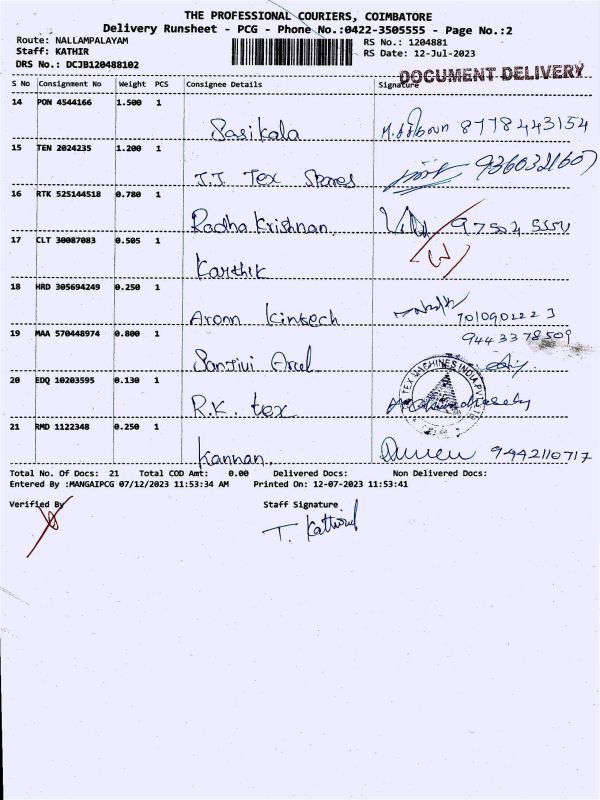 THE PROFESSIONAL COURIERS, COIMBATORE
Delivery Runsheet - PCG - Phone No.:0422-3505555 - Page No.:2
Route: NALLAMPALAYAM
RS No.: 1204881
Staff: KATHIR
RS Date: 12-Jul-2023
DRS No.: DCJB120488102
DOCUMENT DELIVERY
S No Consignment No Weight PCS Consignee Details Signature
14 PON 4544166 1.500 1
Sasikala 8778443154
15 TEN 2024235 1.200 1
J.J Tex Spares 9360321607
16 RTK 525144518 0.780 1
Radha Krishnan
17 CLT 30087083 0.505 1
Karthik
18 HRD 305694249 0.250 1
Arom Kintech 7010902223
19 MAA 570448974 0.800 1
9443378509
Sanjivi Arel
20 EDQ 10203595 0.130 1
R.K. tex
TEX MACHINES INDIA PVT LTD
21 RMD 1122348 0.250 1
Kannan 9442110717
Total No. Of Docs: 21 Total COD Amt: 0.00 Delivered Docs: Non Delivered Docs:
Entered By :MANGAIPCG 07/12/2023 11:53:34 AM Printed On: 12-07-2023 11:53:41
Verified By Staff Signature